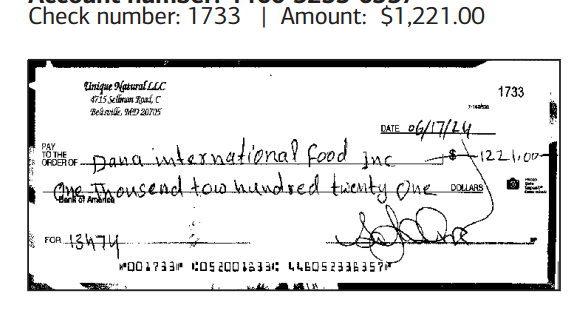 Check number: 1733 | Amount: $1,221.00
Unique Natural LLC
4715 Sellman Road, C
Beltsville, MD 20705
1733
DATE 06/17/24
PAY TO THE ORDER OF Dana international food Inc $ 1221.00
One Thousend tow hundred twenty One DOLLARS
Bank of America
FOR 13474